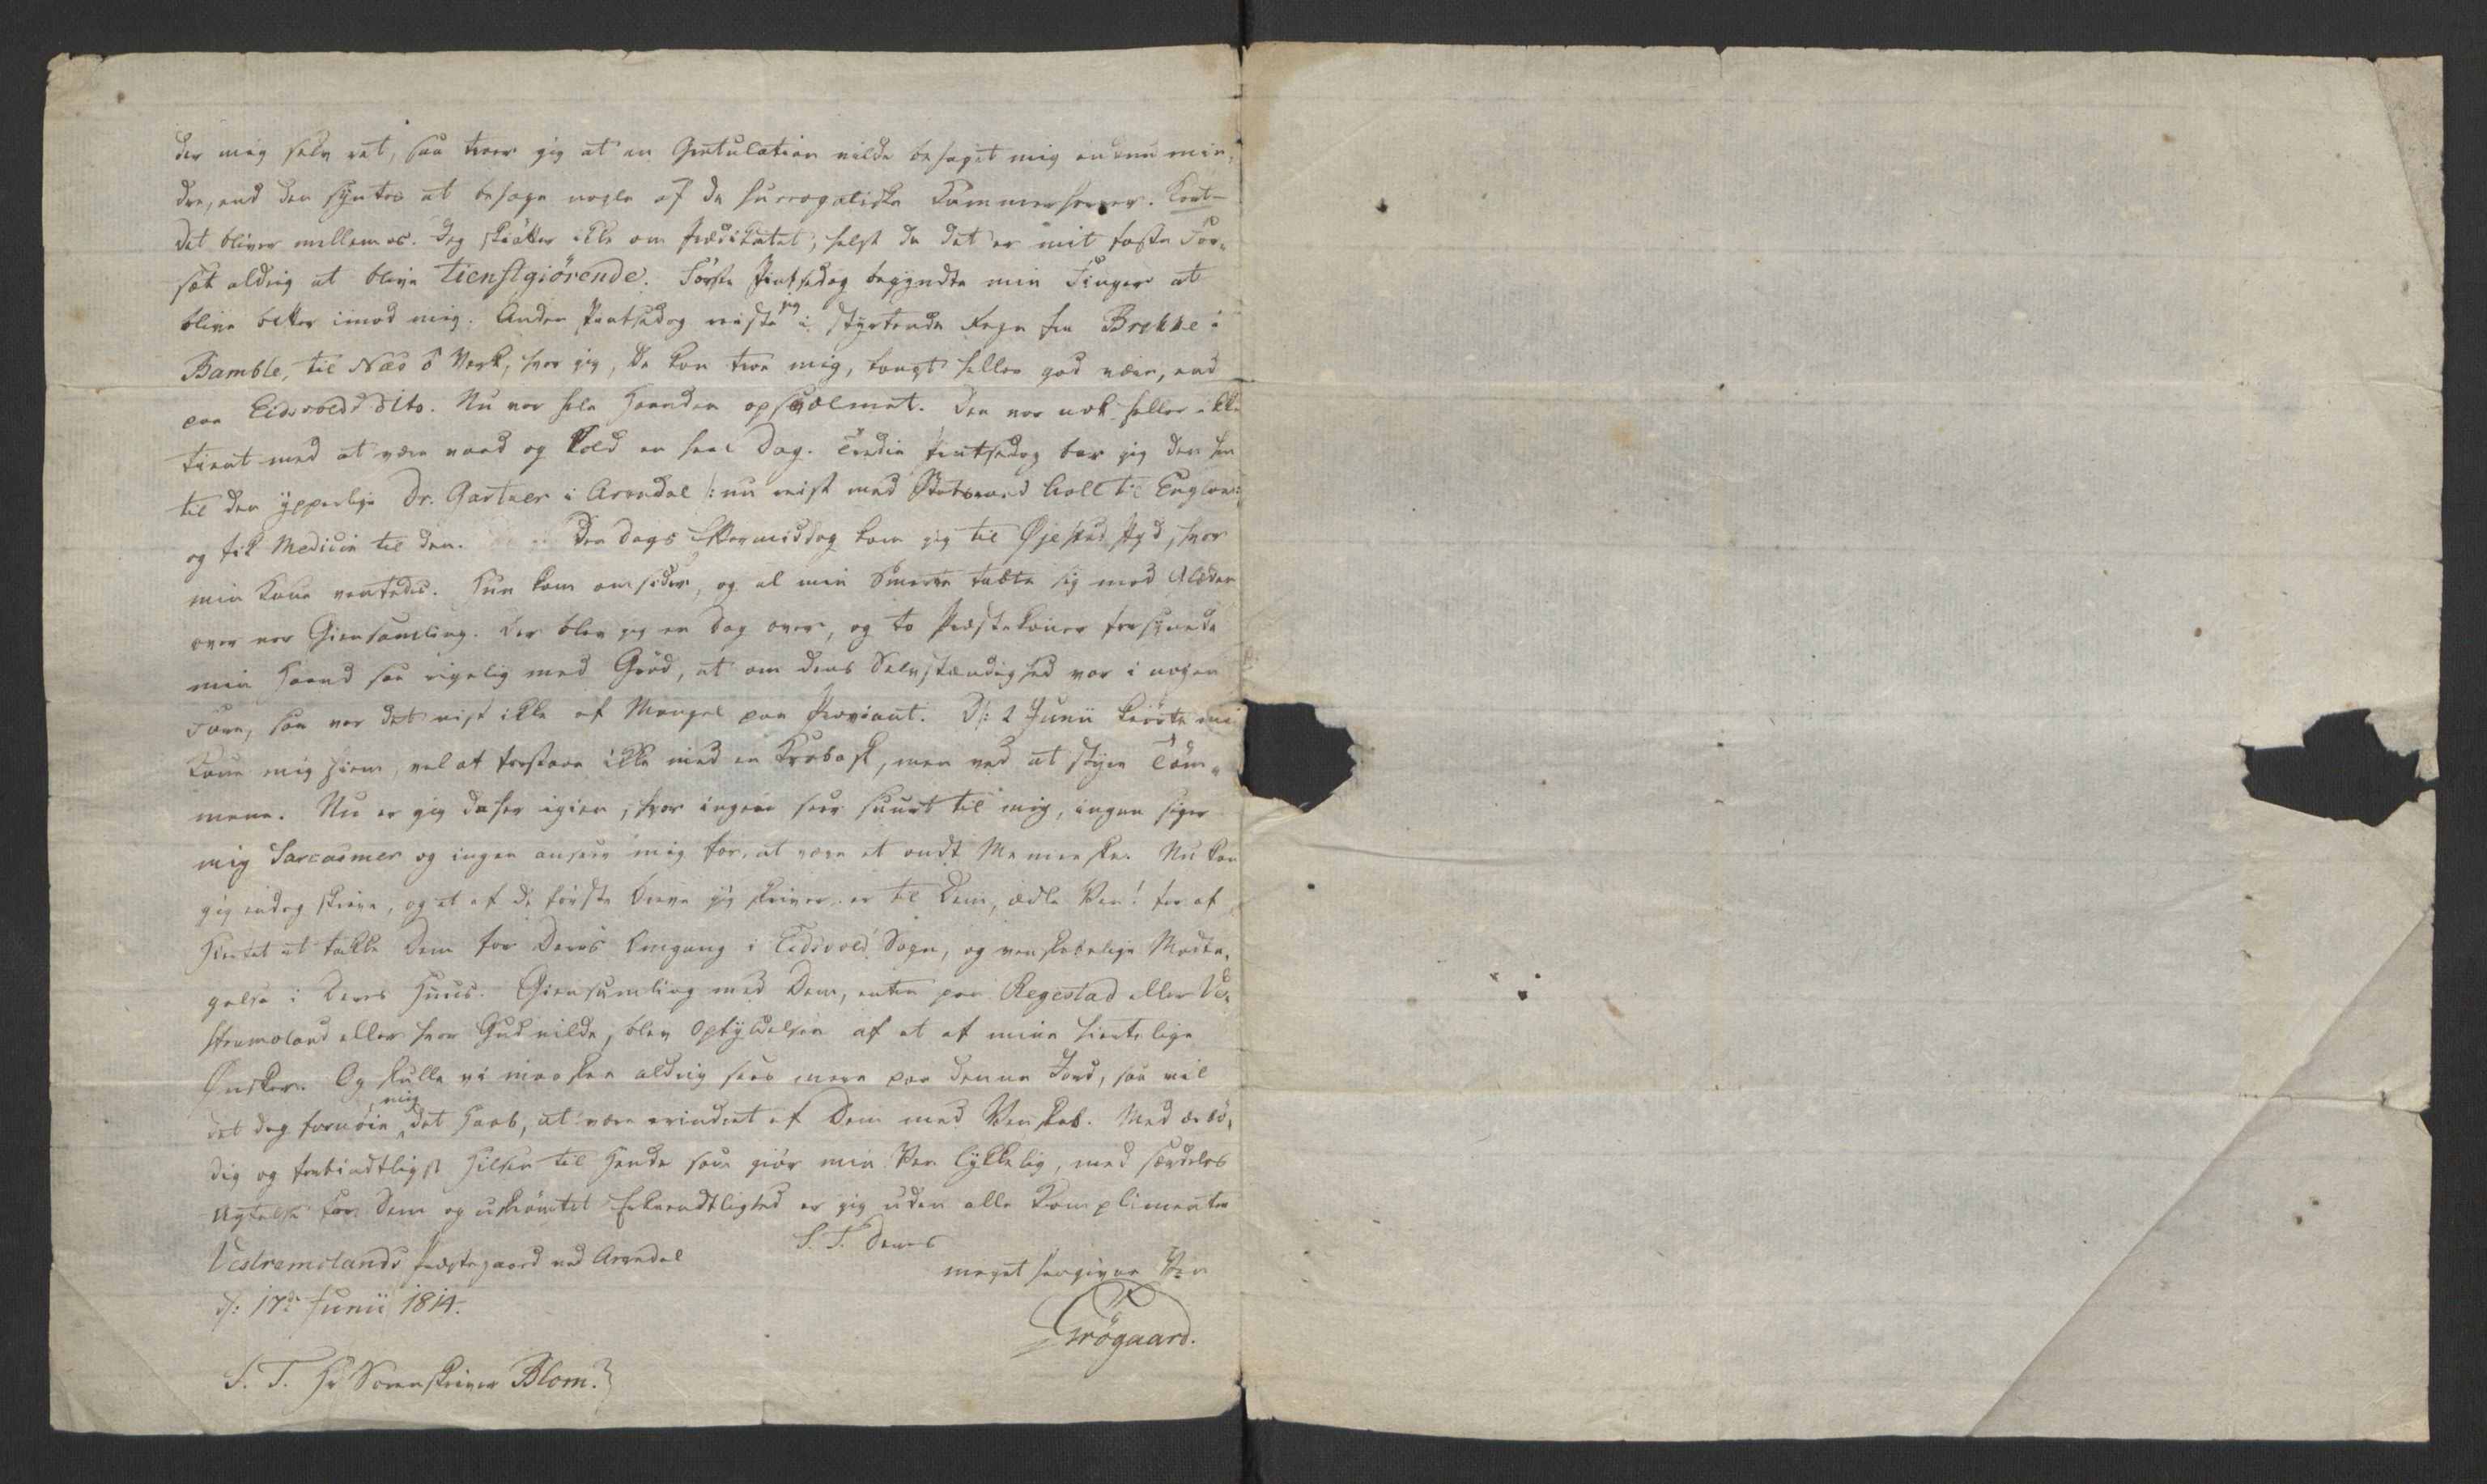 der mig selv ret, saa troer jeg at en Gratulation vilde behaget mig endnu min-
dre, end den syntes at behage nogle af de surrogatiske Kammerherrer. Kort-
det bliver mellem os. Jeg skiøtter ikke om Prædikatet, helst da det er mit faste For-
sæt aldrig at blive tienstgiörende. Første Pintsedag begyndte min Finger at
blive bitter imod mig. Anden Pintsedag reiste jeg i styrtende Regn fra Brekke i
Bamble, til Næs's Verk, hvor jeg, De kan troe mig, langt heller gad være, end
paa Eidsvolds dito. Nu var hele Haanden opsvolmet. Den var nok heller ikke
tient med at være vaad og kold en heel Dag. Tredie Pintsedag bar jeg den hen
til den ypperlige Dr. Gartner i Arendal /: nu reist med Statsraad Aall til Engelan:
og fik Medicin til den. Den Dags Eftermiddag kom jeg til Øjestad Pgd, hvor
min Kone ventedes. Hun kom omsider, og al min Smerte tabte sig mod Glæden
over vor Giensamling. Der blev jeg en Dag over, og to Præstekoner forsynede
min Haand saa rigelig med Gröd, at om dens Selvstændighed var i nogen
Fare, saa var det vist ikke af Mangel paa Proviant. D: 2 Junii kiörte mi
Kone mig hiem, vel at forstaae ikke med en Krabask, men ved at styre Töm-
mene. Nu er jeg da her igien, hvor ingen seer suurt til mig, ingen siger
mig Sarcasmer og ingen anseer mig for, at være et ondt Menneske. Nu kan
jeg endog skrive, og et af de förste Breve jeg skriver er til Dem, ædle Ven! for af
Hiertet at takke Dem for Deres Omgang i Eidsvold Sogn, og venskabelige Modta-
gelse i Deres Huus. Giensamling med Dem, enten paa Regestad eller Ve-
stremoland eller hvor Gud vilde, blev Opfyldelsen af et af mine hiertelige
Ønsker. Og skulle vi maaskee aldrig sees mere paa denne Jord, saa vil
det dog fornöie mig det Haab, at være erindret af Dem med Venskab. Med ærbö-
dig og forbindtligst Hilsen til Hende som giör min Ven lykkelig, med særdeles
Agtelse for Dem og uskrömtet Erkiendtlighed er jeg uden alle Komplimenter
S. T. Deres
Vestremolands Præstegaard ved Arendal
meget hengivne Ven
d: 17de Junii 1814.
Grögaard.
S. T. Hr Sorenskriver Blom.